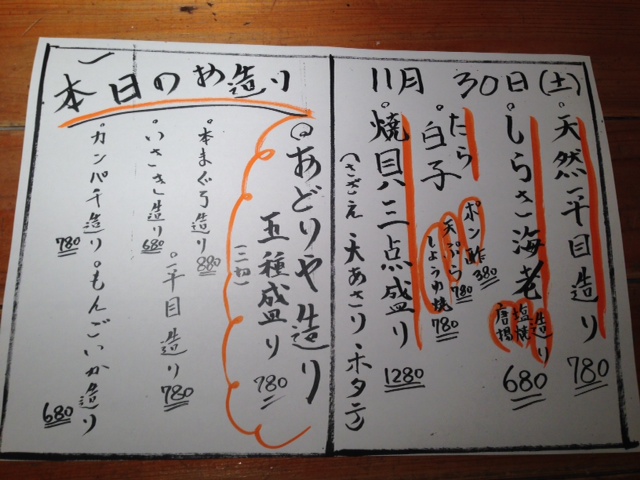 11月 30日(土)
。天然平目造り 780
。しらさ海老 造り 塩焼 唐揚 680
。たら白子
ポン酢 380
天ぷら 780
しょうゆ焼 780
。焼貝三点盛り 1280
(さざえ・大あさり・ホタテ)
本日のお造り
◎あどりや造り
五種盛り 980
(二切)
。本まぐろ造り 880
。平目造り 780
。いさき造り 680
。カンパチ造り 780
。もんごいか造り 680